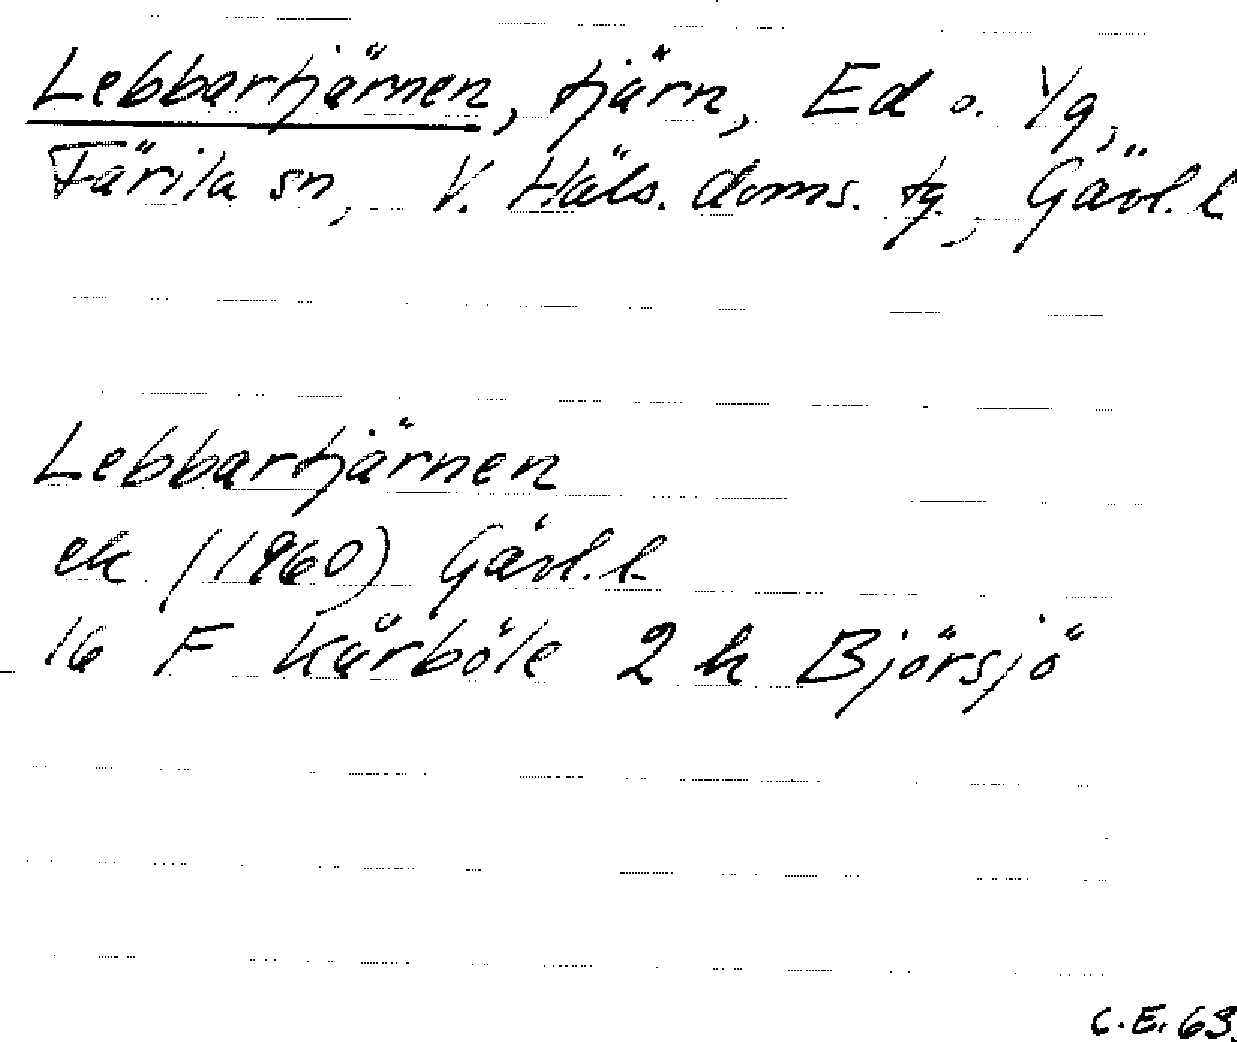 Lebbartjärnen, tjärn, Ed o. Yg,
Färila sn, V. Häls. doms. tg., Gävl. l
Lebbartjärnen
ek (1960) Gävl. l.
16 F Kårböle 2 h Björsjö
C.E. 63.